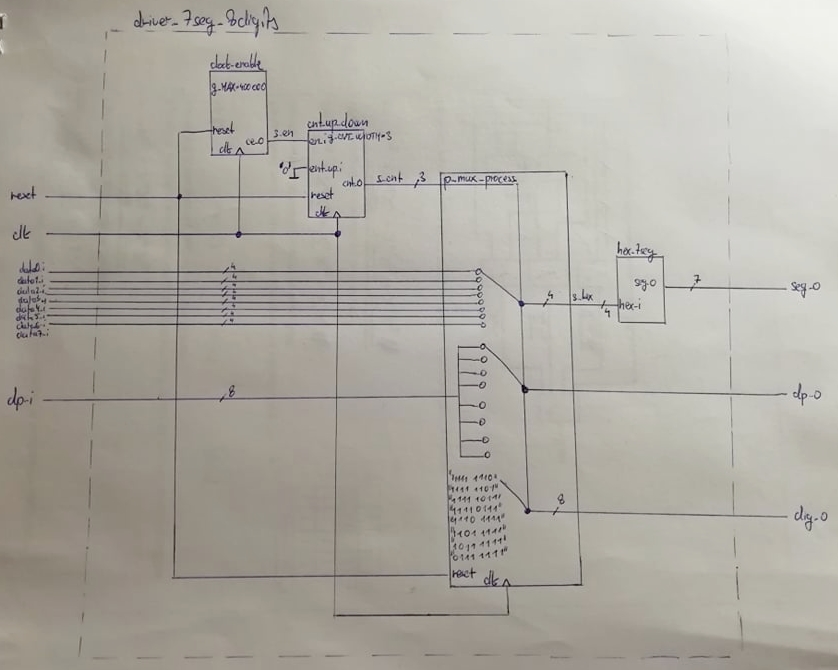 driver_7seg_8digits
clock-enable
g-MAX=400 000
reset
ce.o
clk
s.en
cnt.up.down
en.i
g-CNT_WIDTH=3
'0'
cnt.up.i
cnt.o
reset
clk
s.cnt
3
reset
clk
p_mux_process
data0.i
data1.i
data2.i
data3.i
data4.i
data5.i
data6.i
data7.i
4
4
4
4
4
4
4
4
4
s.hex
4
hex.7seg
seg.o
hex-i
7
seg-o
dp-i
8
dp-o
"1111 1110"
"1111 1101"
"1111 1011"
"1111 0111"
"1110 1111"
"1101 1111"
"1011 1111"
"0111 1111"
8
dig-o
reset
clk